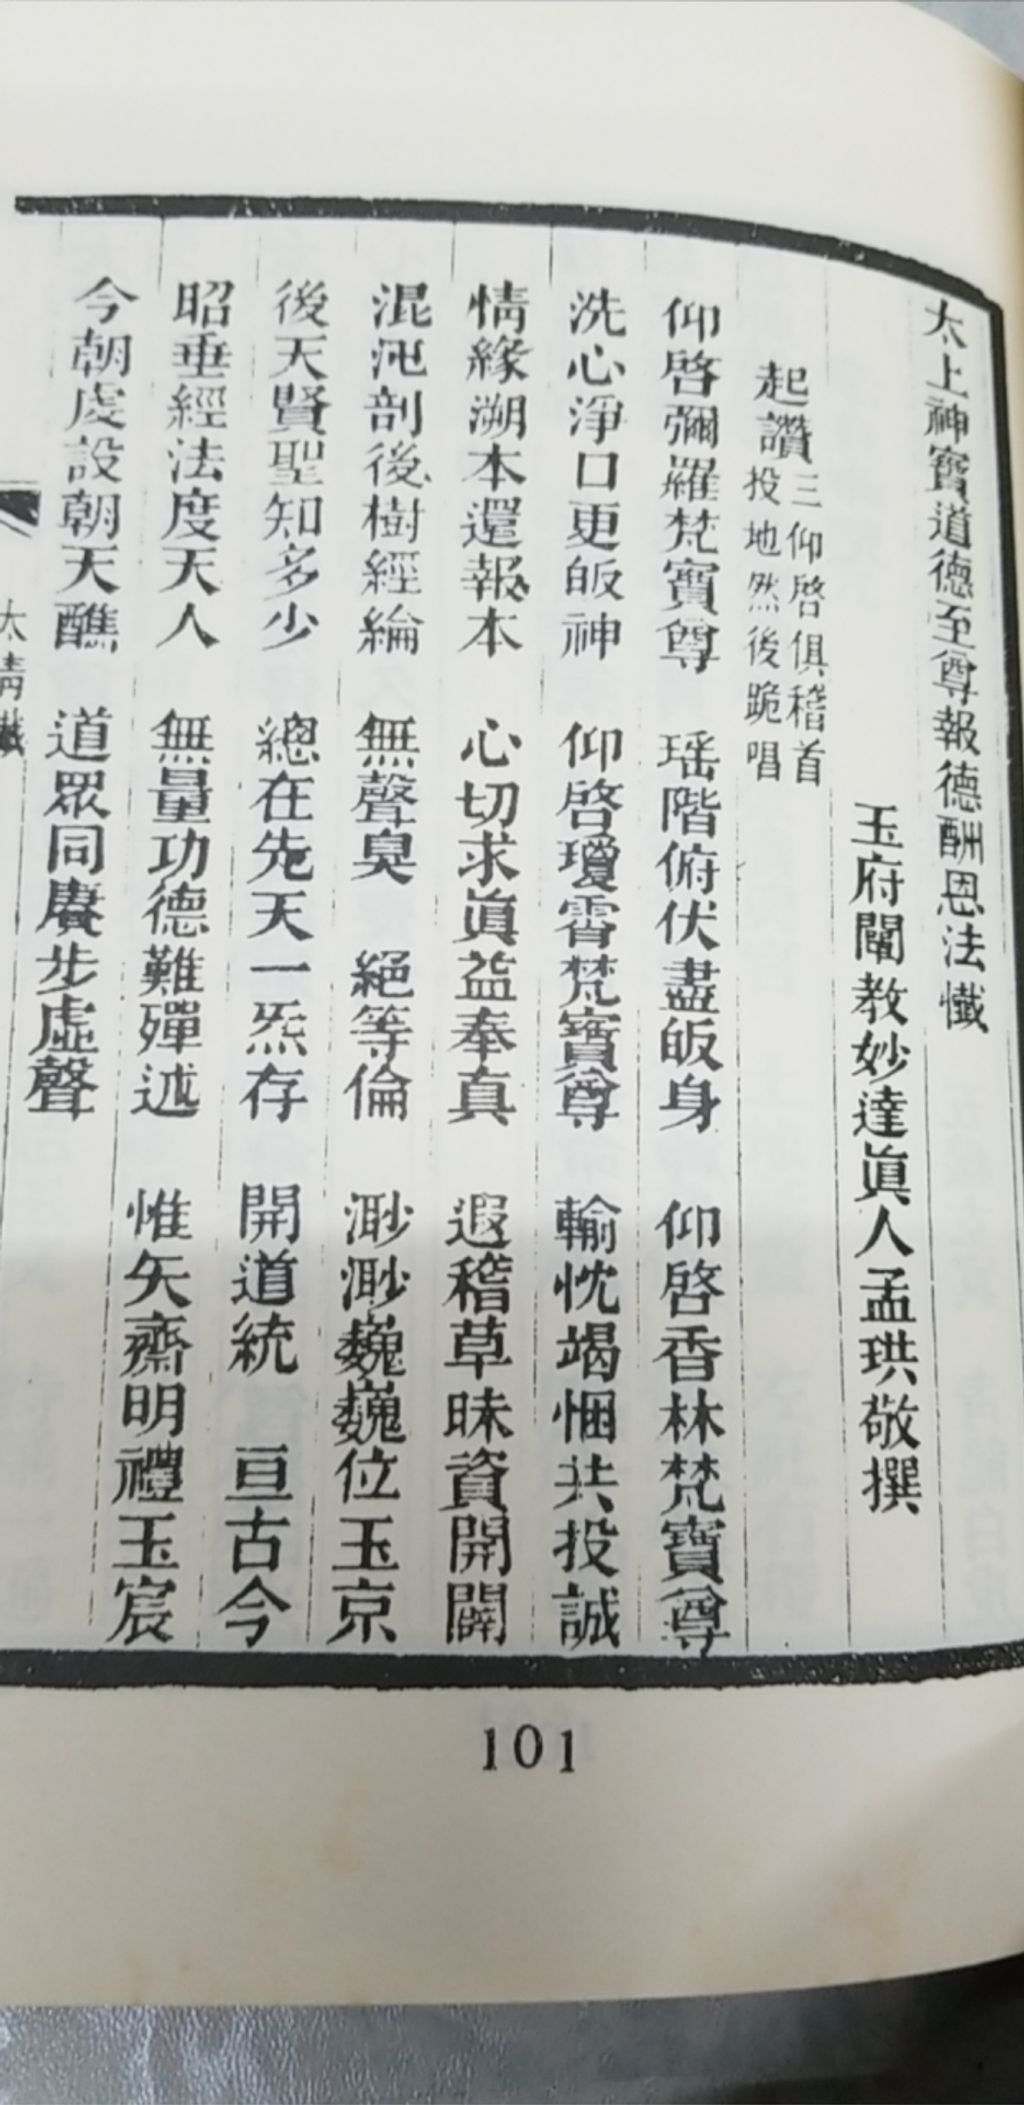 太上神寶道德至尊報德酬恩法懺
玉府闡教妙達眞人孟珙敬撰
起讚三仰啓俱稽首
投地然後跪唱
仰啓彌羅梵寶尊 瑶階俯伏盡皈身 仰啓香林梵寶尊
洗心淨口更皈神 仰啓瓊霄梵寶尊 輸忱竭悃共投誠
情緣溯本還報本 心切求眞益奉真 遐稽草昧資開闢
混沌剖後樹經綸 無聲臭 絕等倫 渺渺巍巍位玉京
後天賢聖知多少 總在先天一炁存 開道統 亘古今
昭垂經法度天人 無量功德難殫述 惟矢齋明禮玉宸
今朝虔設朝天醮 道眾同賡步虛聲
太清懺
101